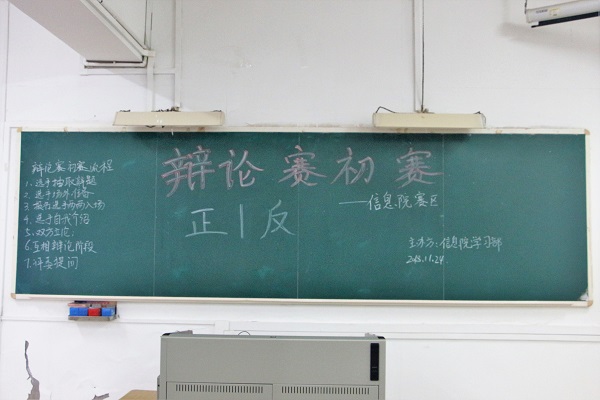 辩论赛初赛
——信息院赛区
正|反
辩论赛初赛流程
1、选手抽取辩题
2、选手场外准备
3、按号选手两两入场
4、选手自我介绍
5、双方立论;
6、互相辩论阶段
7、评委提问
主办方:信息院学习部